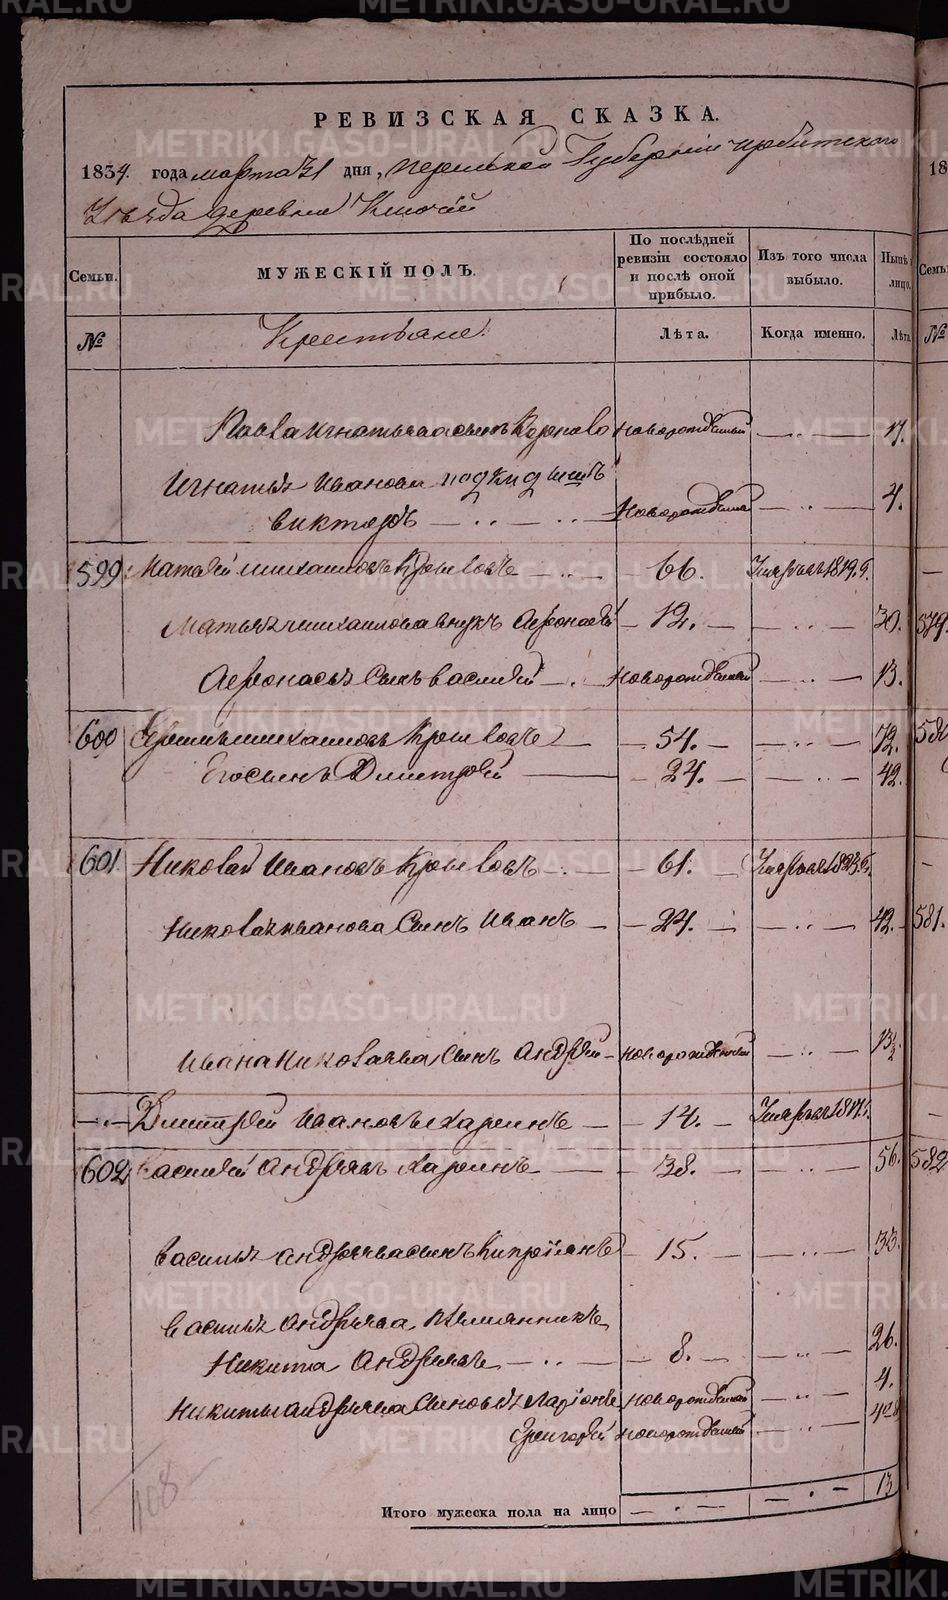 РЕВИЗСКАЯ СКАЗКА.
1834. года марта 31 дня, Пермской Губернии Ирбитского
Уезда деревни Ключей
Семьи. МУЖЕСКІЙ ПОЛЪ. По послѣдней ревизіи состояло и послѣ оной прибыло. Изъ того числа выбыло. Нынѣ лицо. Семь
№ Крестьяне: Лѣта. Когда именно. Лѣта №
новорожденный — " — 17.
Игнатья Иванова подкидышъ
Викторъ — " — " — новорожденный — " — 4.
599. Матвей Михайловъ — " — 66. Умеръ въ 1819 г. —
Матвея Михайлова внукъ Афонасей — 12. — " — 30. 579.
Афонасья Сынъ Василей — новорожденный — " — 13.
600 Михайловъ — 54. — " — 72. 580
Его сынъ Дмитрей — 24. — " — 42.
601. Николай Ивановъ — " — 61. Умеръ въ 1823 г. —
Николая Иванова Сынъ Иванъ — 24. — " — 42. 581.
Ивана Николаева Сынъ Андрей — новорожденный — " — 13½
— " — Дмитрей Ивановъ Харинъ — 14. Умеръ въ 1817 г. —
602 Василей Андреевъ Харинъ — 38. — " — 56. 582
Василья Андреева сынъ Кипріянъ — 15. — " — 33.
Василья Андреева племянникъ
Никита Андреевъ — " — 8. — " — 26.
Никиты Андреева Сыновья Ларіонъ новорожденный — " — 4.
Григорей новорожденный — " —
Итого мужеска пола на лицо — " — — " — 13
108
METRIKI.GASO-URAL.RU